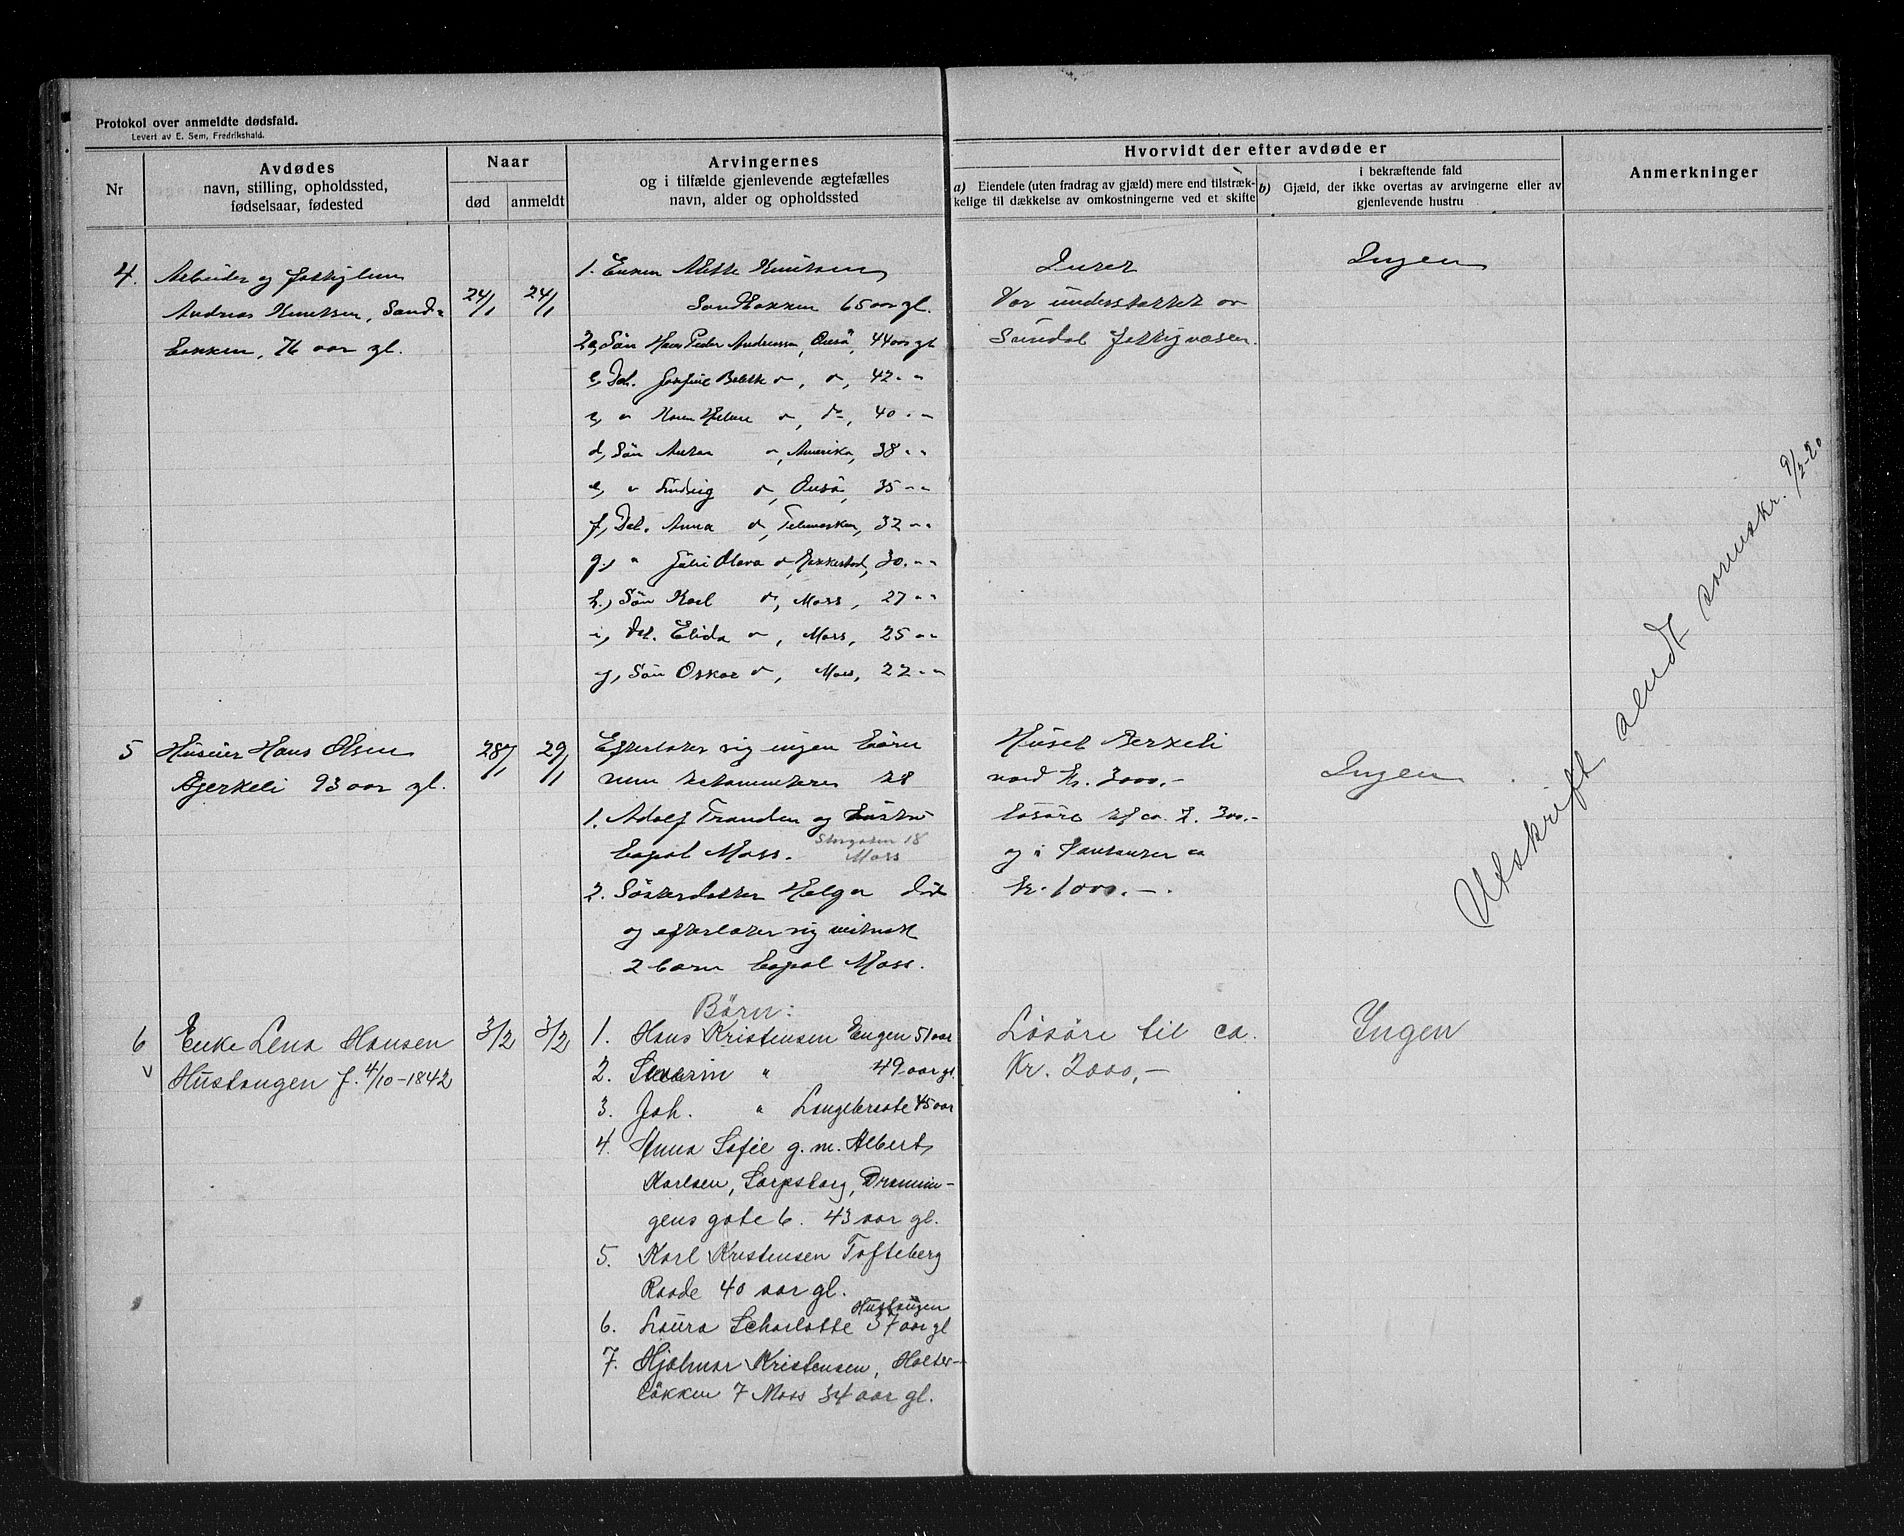 Protokol over anmeldte dødsfald.
Levert av E. Sem, Fredrikshald.
Nr
Avdødes
navn, stilling, opholdssted,
fødselsaar, fødested
Naar
død
anmeldt
Arvingernes
og i tilfælde gjenlevende ægtefælles
navn, alder og opholdssted
Hvorvidt der efter avdøde er
a) Eiendele (uten fradrag av gjæld) mere end tilstræk-
kelige til dækkelse av omkostningerne ved et skifte
i bekræftende fald
b) Gjæld, der ikke overtas av arvingerne eller av
gjenlevende hustru
Anmerkninger
4.
Arbeider og fattiglem
Andreas Knutsen, Sand-
bakken, 76 aar gl.
24/1
24/1
1. Enken Mette Knutsen,
Sandbakken 65 aar gl.
2a, Søn Hans Peder Andreassen, Onsö, 44 aar gl
b, Dat. Josefine Bolette do, do, 42 " "
c, " Karen Helene do, do, 40 " "
d, Søn Anton do, Amerika, 38 " "
e, " Ludvig do, Onsö, 35 " "
f, Dat. Anna do, Telemarken, 32 " "
g, " Julie Olava do, Rakkestad, 30. " "
h, Søn Karl do, Moss, 27 " "
i, Dat. Elida do, Moss, 25 " "
j, Søn Oskar do, Moss, 22 " "
Intet
Var understøttet av
fattigvæsen.
Ingen
5
Huseier Hans Olsen
Bjerkeli 93 aar gl.
28/1
29/1
Efterlater sig ingen börn
men testamenteret til
1. Adolf Tranden og hustru
bopæl Moss. Storgaten 18
Moss
2. Søsterdatter Helga död
og efterlater sig
2 barn bopæl Moss.
Huset Berkeli
værd kr. 3000.-
løsøre til ca. kr. 300.-
og i kontanter ca
kr. 1000.-.
Ingen
6
Enke Lena Hansen
Hustangen f. 4/10-1842
3/2
3/2
Børn:
1. Hans Kristensen Engen 51 aar
2. Severin " 49 aar gl.
3. Joh. " Langebraate 45 aar
4. Anna Sofie g. m. Albert
Karlsen, Sarpsborg, Dronnin-
gens gate 6. 43 aar gl.
5. Karl Kristensen Tofteberg
Raade 40 aar gl.
Hustangen
6. Laura Scharlotte 37 aar gl
7. Hjalmar Kristensen, Holter-
løkken 7 Moss 34 aar gl.
Løsøre til ca.
Kr. 2000,-
Ingen
Utskrift sendt sorenskr. 9/2-20